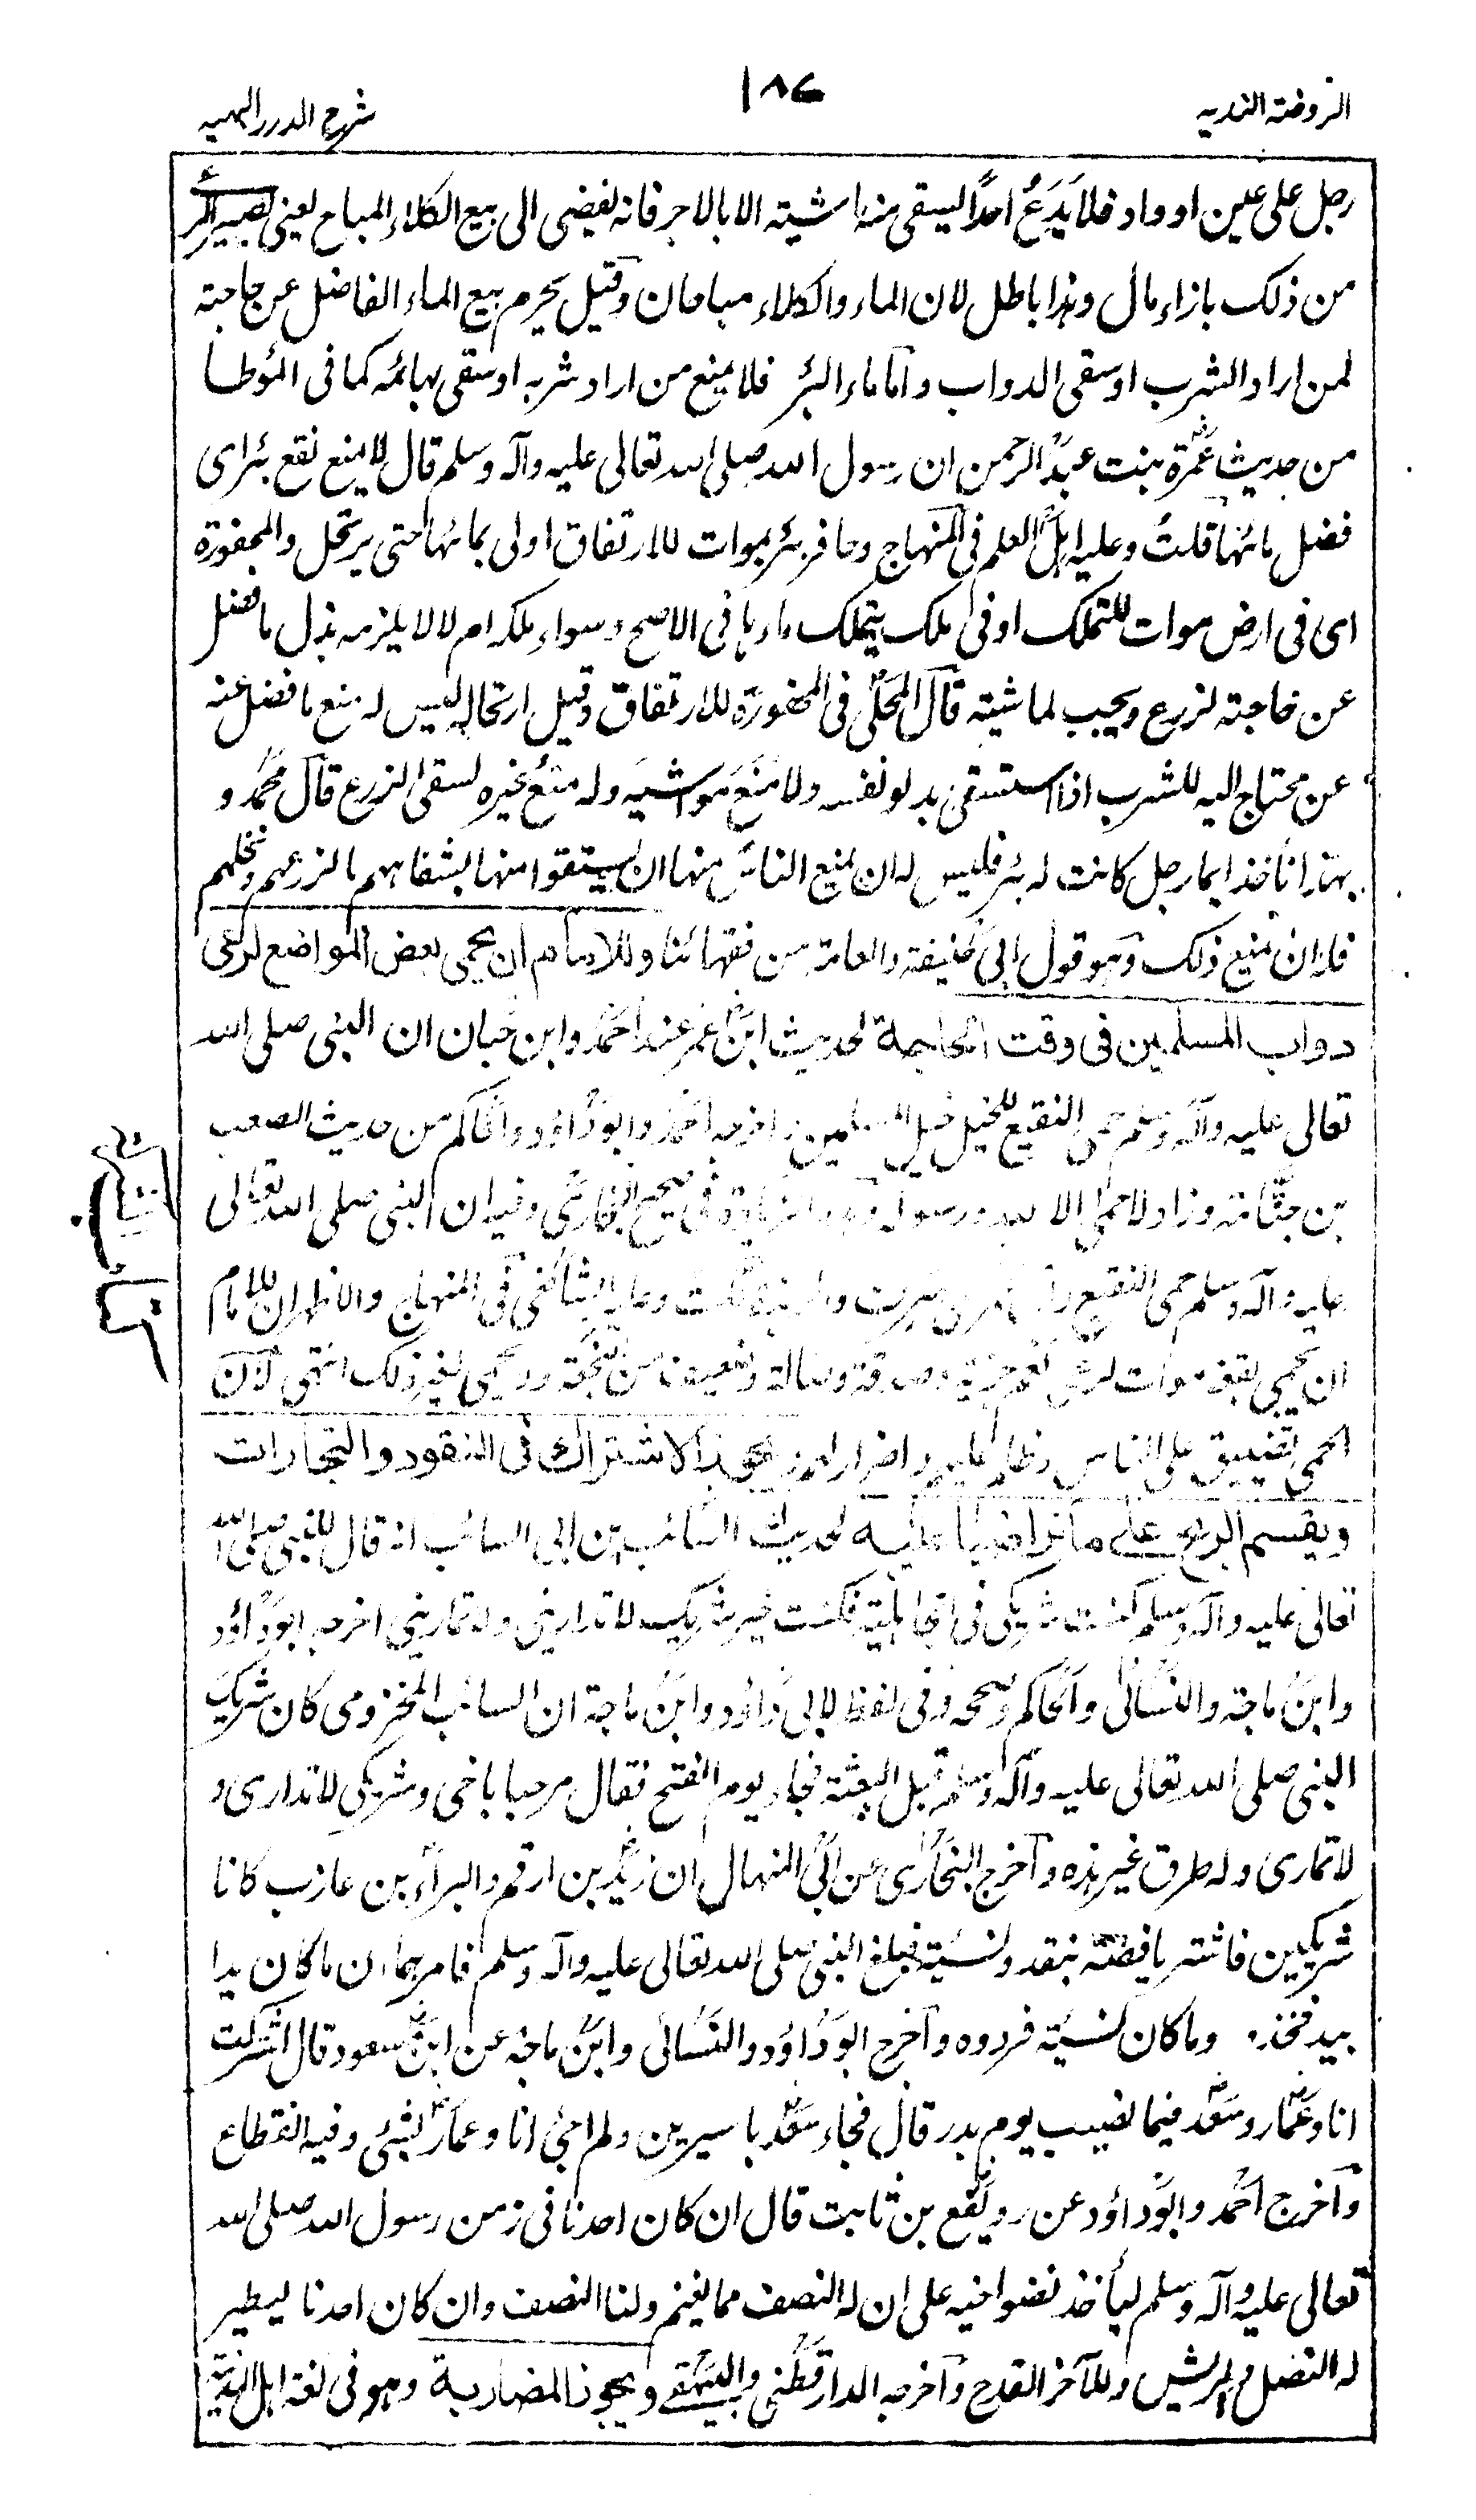 الروضة الندية
١٨٧
شرح الدرر البهية
رجل على عين او واد فلا يَدَعُ احدًا ليسقى منها ماشيته الا بالاجر فانه يفضى الى بيع الكلاء المباح يعنى يصير
من ذلك بازاء مال وهذا باطل لان الماء والكلاء مباحان وقيل يحرم بيع الماء الفاضل عن حاجته
لمن اراد الشرب او سقى الدواب واما ماء البئر فلا يمنع من اراد شربه او سقى بهائمه كما فى المؤطا
من حديث عمرة بنت عبد الرحمن ان رسول الله صلى الله تعالى عليه وآله وسلم قال لا يمنع نقع بئر اى
فضل مائها قلت وعليه اهل العلم فى المنهاج وحافر بئر بموات للارتفاق اولى بمائها حتى يرتحل والمحفورة
اى فى ارض موات للتملك او فى ملك يتملك ماءها فى الاصح وسواء ملكه ام لا لا يلزمه بذل ما فضل
عن حاجته لزرع ويجب لماشية قال المحلى فى المحفورة للارتفاق وقبل ارتحاله ليس له منع ما فضل عنه
عن محتاج اليه للشرب اذا استسقى بدلو نفسه ولا منع مواشيه وله منع غيره لسقى الزرع قال محمد و
بهذا ناخذ ايما رجل كانت له بئر فليس له ان يمنع الناس منها ان يستقوا منها لشفاههم الزرعهم ونخلهم
فله ان يمنع ذلك وهو قول ابى حنيفة والعامة من فقهائنا وللامام ان يحمى بعض المواضع لرعى
دواب المسلمين فى وقت الحاجة لحديث ابن عمر عند احمد وابن حبان ان النبى صلى الله
تعالى عليه وآله وسلم حمى النقيع للخيل خيل المسلمين واخرجه احمد وابو داؤد والحاكم من حديث الصعب
بن جثامة وزاد لا حمى الا لله ورسوله وهذه الزيادة فى صحيح البخارى وفيه ان النبى صلى الله تعالى
عليه وآله وسلم حمى النقيع وان عمر حمى سرف والربذة قلت وعليه الشافعى فى المنهاج والاظهر ان للامام
ان يحمى بقعة موات لرعى نعم جزية وصدقة وضالة وضعيف عن النجعة ولا يحمى لغير ذلك انتهى لان
الحمى تضييق على الناس وظلم عليهم واضرار بهم ويجوز الاشتراك فى النقود والتجارات
ويقسم الربح على ما تراضيا عليه لحديث السائب بن ابى السائب انه قال للنبى صلى الله
تعالى عليه وآله وسلم كنت شريكى فى الجاهلية فكنت خير شريك لا تدارينى ولا تمارينى اخرجه ابو داؤد
وابن ماجة والنسائى والحاكم وصححه وفى لفظ لابى داؤد وابن ماجة ان السائب المخزومى كان شريك
النبى صلى الله تعالى عليه وآله وسلم قبل البعثة فجاء يوم الفتح فقال مرحبا باخى وشريكى لا تدارى و
لا تمارى وله طرق غير هذه واخرج البخارى عن ابى المنهال ان زيد بن ارقم والبراء بن عازب كانا
شريكين فاشتريا فضة بنقد ونسيئة فبلغ النبى صلى الله تعالى عليه وآله وسلم فامرهما ان ما كان يدا
بيد فخذه وما كان نسيئة فردوه واخرج ابو داؤد والنسائى وابن ماجة عن ابن مسعود قال اشتركت
انا وعمار وسعد فيما نصيب يوم بدر قال فجاء سعد باسيرين ولم اجئ انا وعمار بشئ وفيه انقطاع
واخرج احمد وابو داؤد عن رويفع بن ثابت قال ان كان احدنا فى زمن رسول الله صلى الله
تعالى عليه وآله وسلم ليأخذ نضو اخيه على ان له النصف مما يغنم ولنا النصف وان كان احدنا ليطير
له النصل والريش وللآخر القدح واخرجه الدارقطنى والبيهقى ويجوز المضاربة وهو فى لغة اهل المدينة